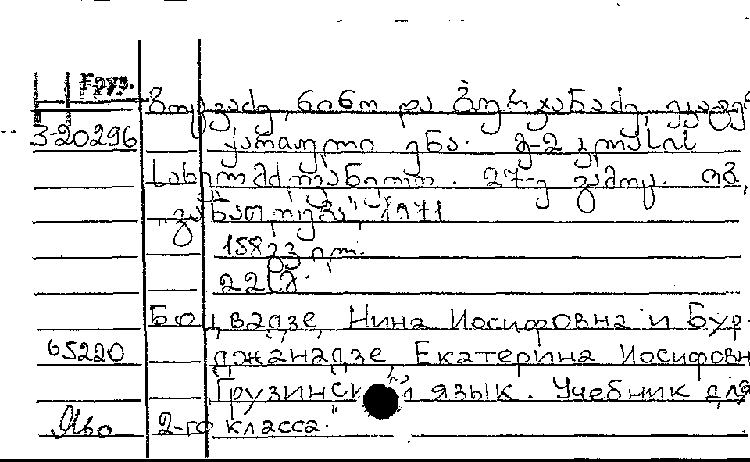 Груз.
ბოცვაძე, ნინო და ბურჯანაძე, ეკატე
3-20296 ქართული ენა. მე-2 კლასის
სახელმძღვანელო. 27-ე გამოც. თბ.,
"განათლება" 1971
158 გვ.
22 სმ.
Боцвадзе, Нина Иосифовна и Бур-
65220 джанадзе Екатерина Иосифовн
Грузинский язык. Учебник для
2-го класса.